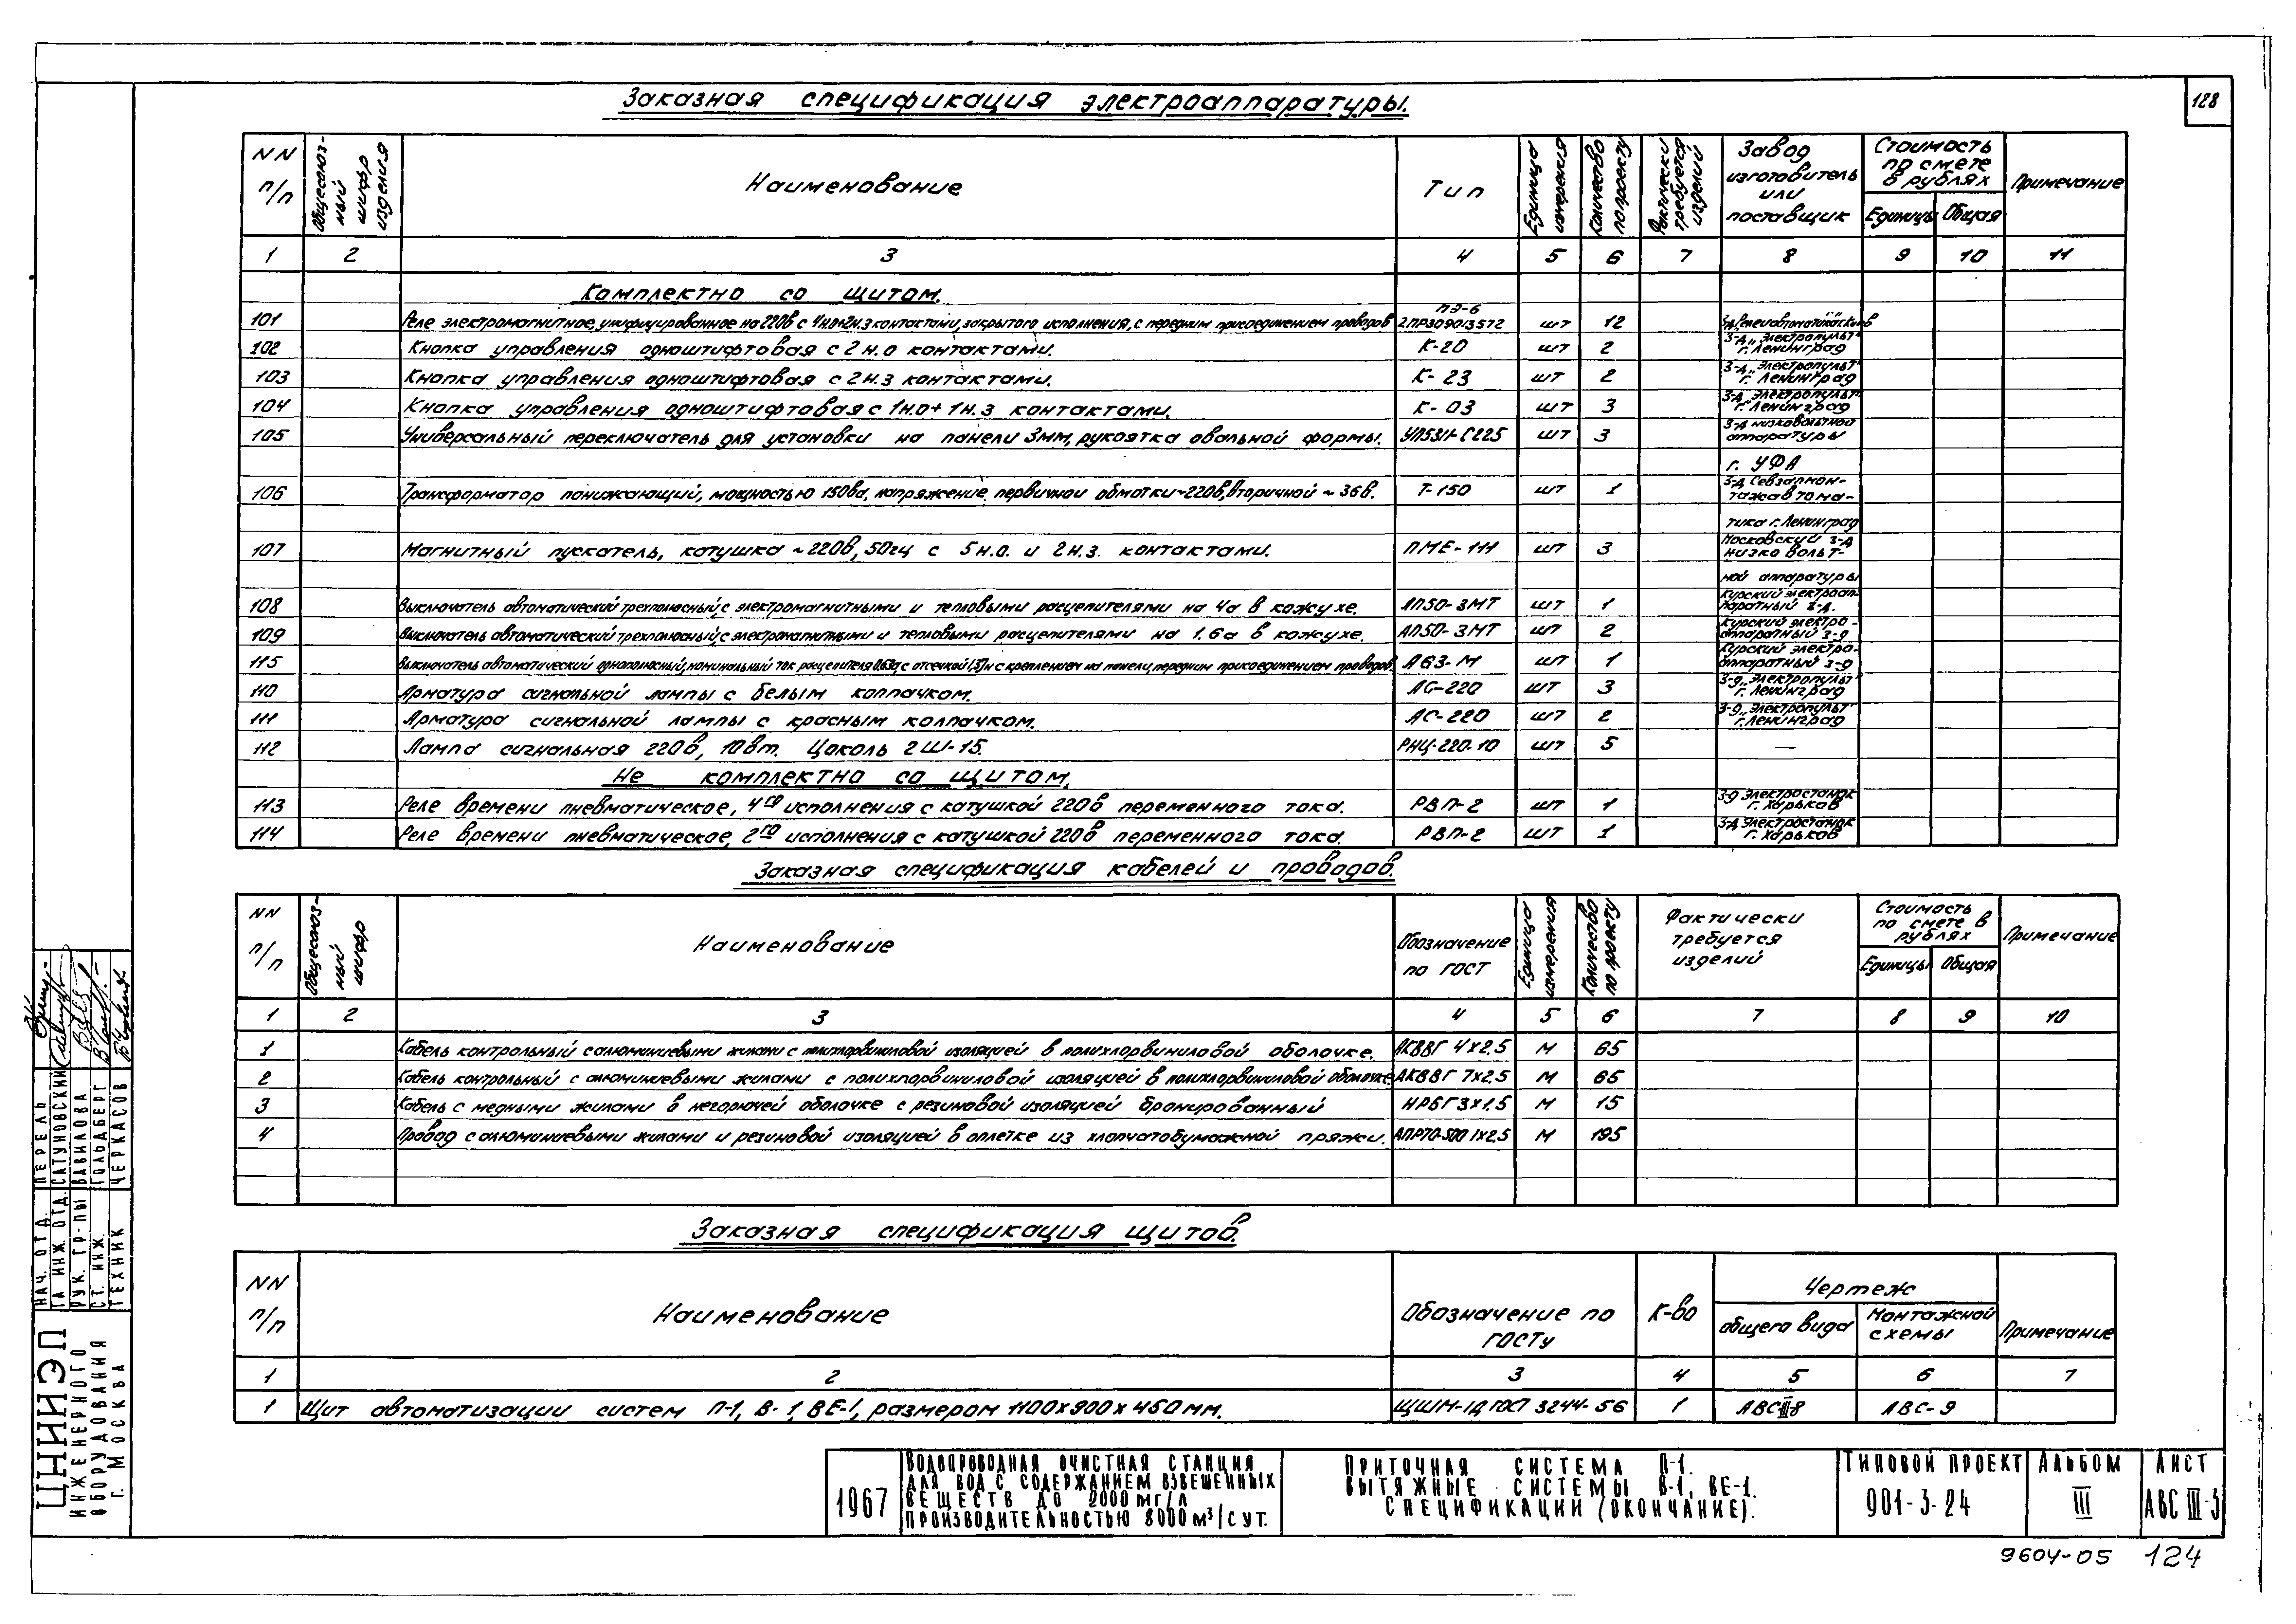 128
Заказная спецификация электроаппаратуры.
NN п/п
Общесоюзный шифр изделия
Наименование
Тип
Единица измерения
Количество по проекту
Фактически требуется изделий
Завод изготовитель или поставщик
Стоимость по смете в рублях
Единицы
Общая
Примечание
1 2 3 4 5 6 7 8 9 10 11
Комплектно со щитом.
101 Реле электромагнитное, унифицированное на 220в с 4н.о+2н.з контактами, закрытого исполнения, с передним присоединением проводов ПЭ-6 2ПР309013572 шт 12
102 Кнопка управления одноштифтовая с 2н.о контактами. К-20 шт 2 З-д „Электропульт" г. Ленинград
103 Кнопка управления одноштифтовая с 2н.з контактами. К-23 шт 2 З-д „Электропульт" г. Ленинград
104 Кнопка управления одноштифтовая с 1н.о+1н.з контактами. К-03 шт 3 З-д „Электропульт" г. Ленинград
105 Универсальный переключатель для установки на панели 3мм, рукоятка овальной формы. УП5311-С225 шт 3 З-д низковольтной аппаратуры
г. УФА
106 Трансформатор понижающий, мощностью 150ва, напряжение первичной обмотки ~220в, вторичной ~36в. Т-150 шт 1 З-д Севзапмонтажавтома-
тика г. Ленинград
107 Магнитный пускатель, катушка ~220в, 50гц с 5н.о. и 2н.з. контактами. ПМЕ-111 шт 3 Московский з-д низковольт-
ной аппаратуры
108 Выключатель автоматический трехполюсный, с электромагнитными и тепловыми расцепителями на 4а в кожухе. АП50-3МТ шт 1 Курский электроаппаратный з-д.
109 Выключатель автоматический трехполюсный, с электромагнитными и тепловыми расцепителями на 1.6а в кожухе. АП50-3МТ шт 2 Курский электроаппаратный з-д
115 Выключатель автоматический однополюсный, номинальный ток расцепителя 0,63а, с отсечкой 1,3Iн с креплением на панели, передним присоединением проводов. А63-М шт 1 Курский электроаппаратный з-д
110 Арматура сигнальной лампы с белым колпачком. АС-220 шт 3 З-д „Электропульт" г. Ленинград
111 Арматура сигнальной лампы с красным колпачком. АС-220 шт 2 З-д „Электропульт" г. Ленинград
112 Лампа сигнальная 220в, 10вт. Цоколь 2Ш-15. РНЦ-220-10 шт 5 —
Не комплектно со щитом.
113 Реле времени пневматическое, 4го исполнения с катушкой 220в переменного тока. РВП-2 шт 1 З-д Электростанок г. Харьков
114 Реле времени пневматическое, 2го исполнения с катушкой 220в переменного тока. РВП-2 шт 1 З-д Электростанок г. Харьков
Заказная спецификация кабелей и проводов.
NN п/п
Общесоюзный шифр
Наименование
Обозначение по ГОСТ
Единица измерения
Количество по проекту
Фактически требуется изделий
Стоимость по смете в рублях
Единицы
Общая
Примечание
1 2 3 4 5 6 7 8 9 10
1 Кабель контрольный с алюминиевыми жилами с полихлорвиниловой изоляцией в полихлорвиниловой оболочке. АКВВГ 4х2,5 М 65
2 Кабель контрольный с алюминиевыми жилами с полихлорвиниловой изоляцией в полихлорвиниловой оболочке АКВВГ 7х2,5 М 65
3 Кабель с медными жилами в негорючей оболочке с резиновой изоляцией бронированный НРБГ 3х1,5 М 15
4 Провод с алюминиевыми жилами и резиновой изоляцией в оплетке из хлопчатобумажной пряжи. АПРТО-500 1х2,5 М 195
Заказная спецификация щитов.
NN п/п
Наименование
Обозначение по ГОСТу
К-во
Чертеж
общего вида
Монтажной схемы
Примечание
1 2 3 4 5 6 7
1 Щит автоматизации систем П-1, В-1, ВЕ-1, размером 1100х900х450мм. ЩШМ-1Д ГОСТ 3244-56 1 АВСIII-8 АВС-9
НАЧ. ОТД. ПЕРЕЛЬ
ГЛ ИНЖ. ОТД. САТУНОВСКИЙ
РУК. ГР-ПЫ ВАВИЛОВА
СТ. ИНЖ. ГОЛЬДБЕРГ
ТЕХНИК ЧЕРКАСОВ
ЦНИИЭП
ИНЖЕНЕРНОГО
ОБОРУДОВАНИЯ
Г. МОСКВА
1967
ВОДОПРОВОДНАЯ ОЧИСТНАЯ СТАНЦИЯ
ДЛЯ ВОД С СОДЕРЖАНИЕМ ВЗВЕШЕННЫХ
ВЕЩЕСТВ ДО 2000 мг/л
ПРОИЗВОДИТЕЛЬНОСТЬЮ 8000 м³/СУТ.
ПРИТОЧНАЯ СИСТЕМА П-1.
ВЫТЯЖНЫЕ СИСТЕМЫ В-1, ВЕ-1.
СПЕЦИФИКАЦИИ (ОКОНЧАНИЕ).
ТИПОВОЙ ПРОЕКТ
901-3-24
АЛЬБОМ
III
ЛИСТ
АВС III-3
9604-05 124